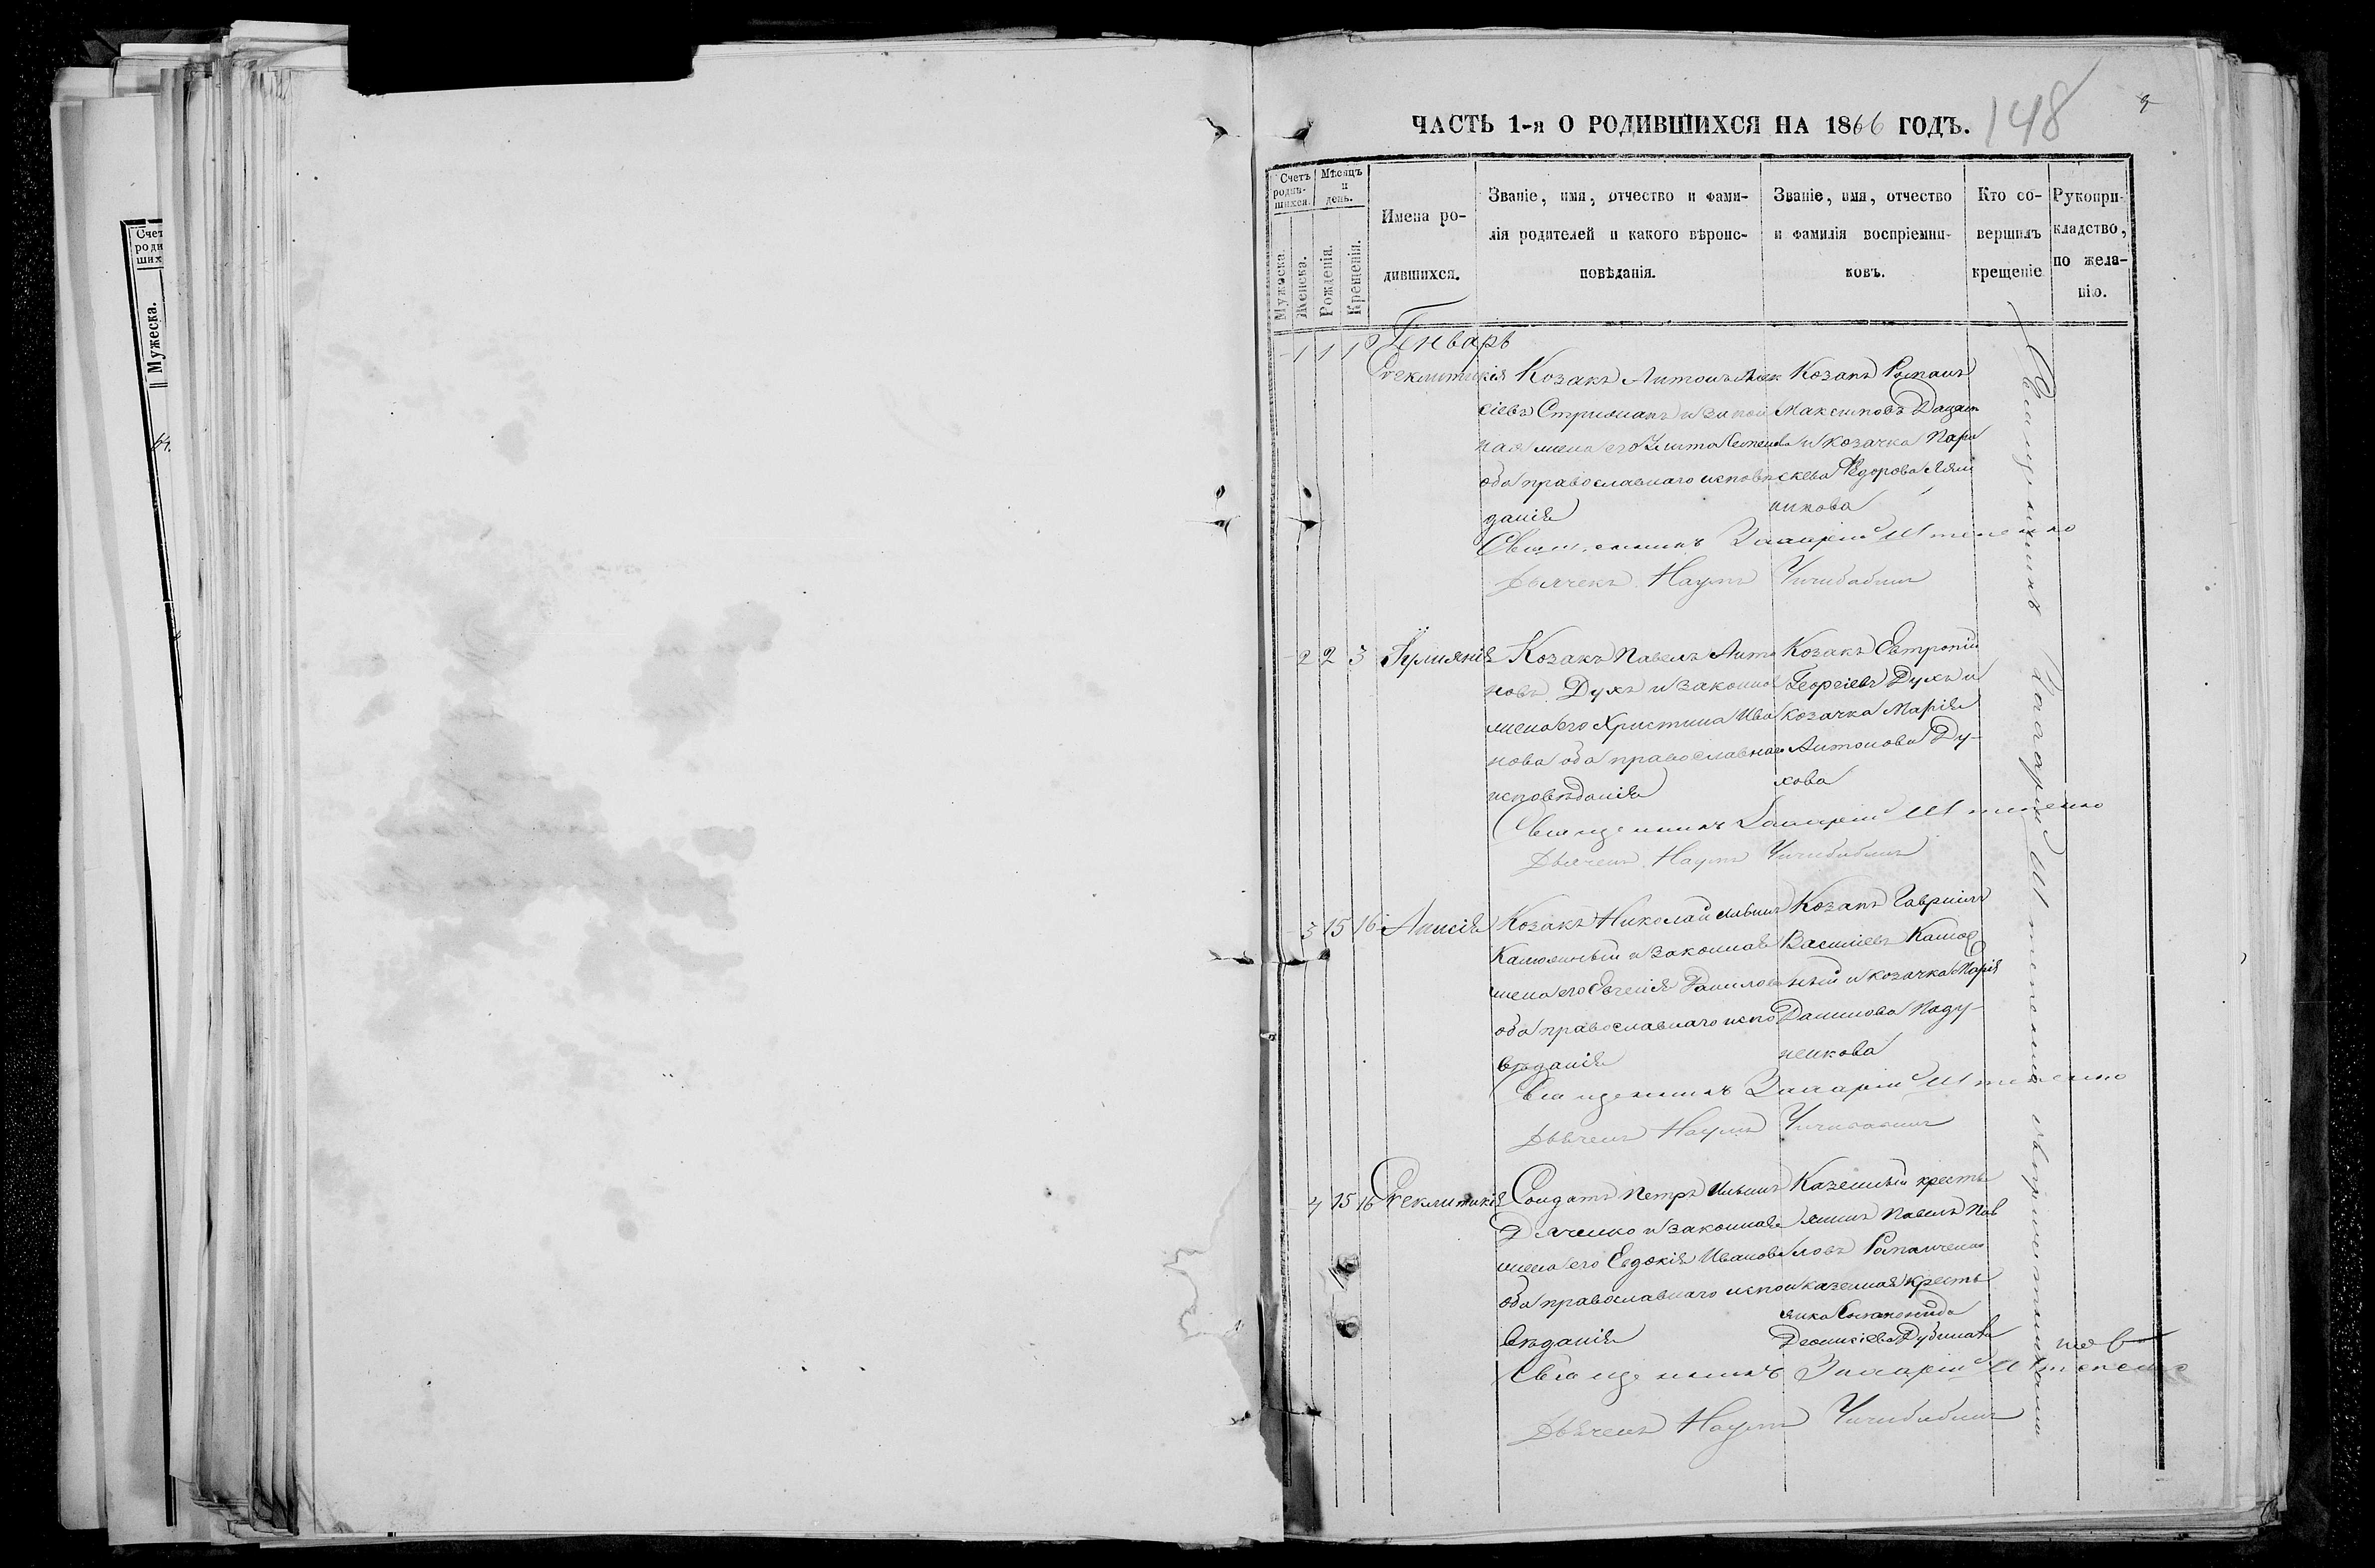 ЧАСТЬ 1-я О РОДИВШИХСЯ НА 1866 ГОДЪ.
148
Счетъ родив-шихся.
Мужеска.
Женска.
Мѣсяцъ и день.
Рожденія.
Крещенія.
Имена ро-
дившихся.
Званіе, имя, отчество и фами-
лія родителей и какого вѣроис-
повѣданія.
Званіе, имя, отчество
и фамилія воспріемни-
ковъ.
Кто со-
вершилъ
крещеніе
Рукопри-
кладство,
по жела-
нію.
Генварь
1 1 1
Козакъ Антонъ Алек
сіевъ и закон
ная жена его Степанова
оба православнаго исповѣ
данія
Козакъ Романъ
Максимовъ
и козачка Пара
скева Ѳедорова
никова
Священникъ Захарій Штепенко
Дьячекъ Наумъ Чичибабинъ
2 2 3 Іуліанія
Козакъ Павелъ Анто
новъ Духъ и законная
жена его Христина Ива
нова оба православнаго
исповѣданія
Козакъ Евтропій
Георгіевъ Духъ и
козачка Марія
Антонова Ду-
хова
Священникъ Захарій Штепенко
Дьячекъ Наумъ Чичибабинъ
3 15 16 Анисія
Козакъ Николай Савинъ
и законная
жена его Евгенія Данилова
оба православнаго испо
вѣданія
Козакъ Гавріилъ
Василіевъ
ный и козачка Марія
Данилова Паду-
нкова
Священникъ Захарій Штепенко
Дьячекъ Наумъ Чичибабинъ
4 15 16
Солдатъ Петръ Ильинъ
Дяченко и законная
жена его Евдокія Иванова
оба православнаго испо
вѣданія
Казенный кресть
янинъ Павелъ Пав
ловъ Романченко
и казенная кресть
янка
Дубинова
Священникъ Захарій Штепенко
Дьячекъ Наумъ Чичибабинъ
Священникъ Захарій Штепенко
Счет
роди
ших
Мужеска.